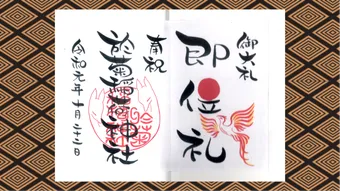 御大礼
即位礼
奉祝
於菊稲荷神社
令和元年十月二十二日